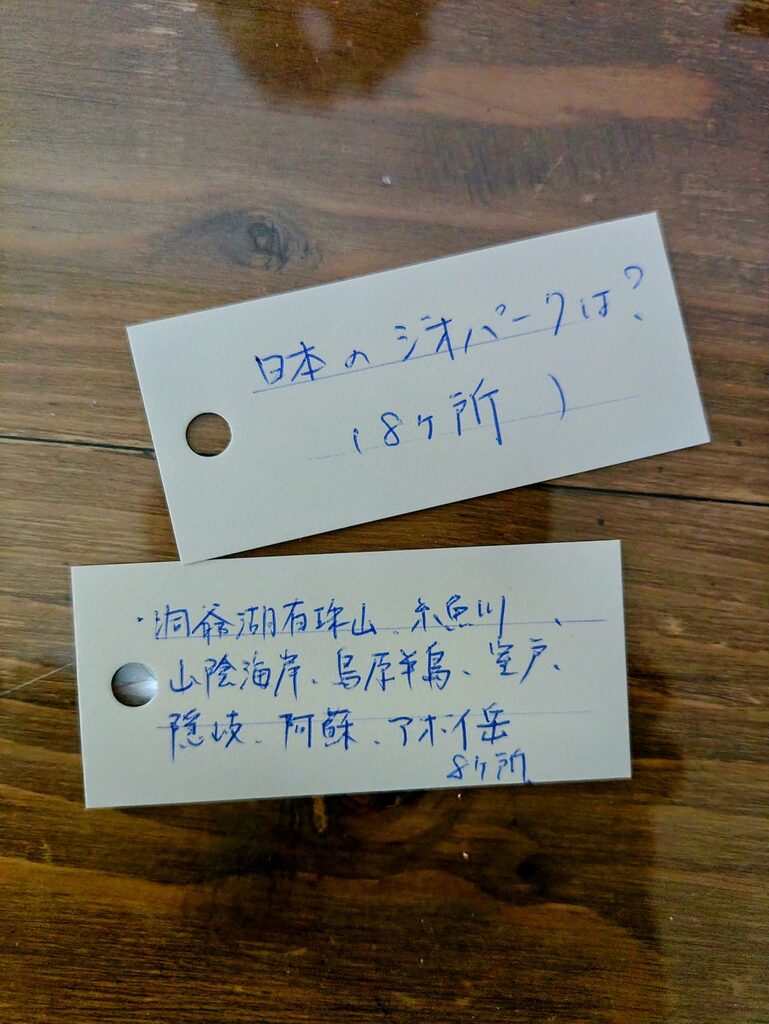 日本のジオパークは?
(8ヶ所)
・洞爺湖有珠山、糸魚川、
山陰海岸、島原半島、室戸、
隠岐、阿蘇、アポイ岳
8ヶ所